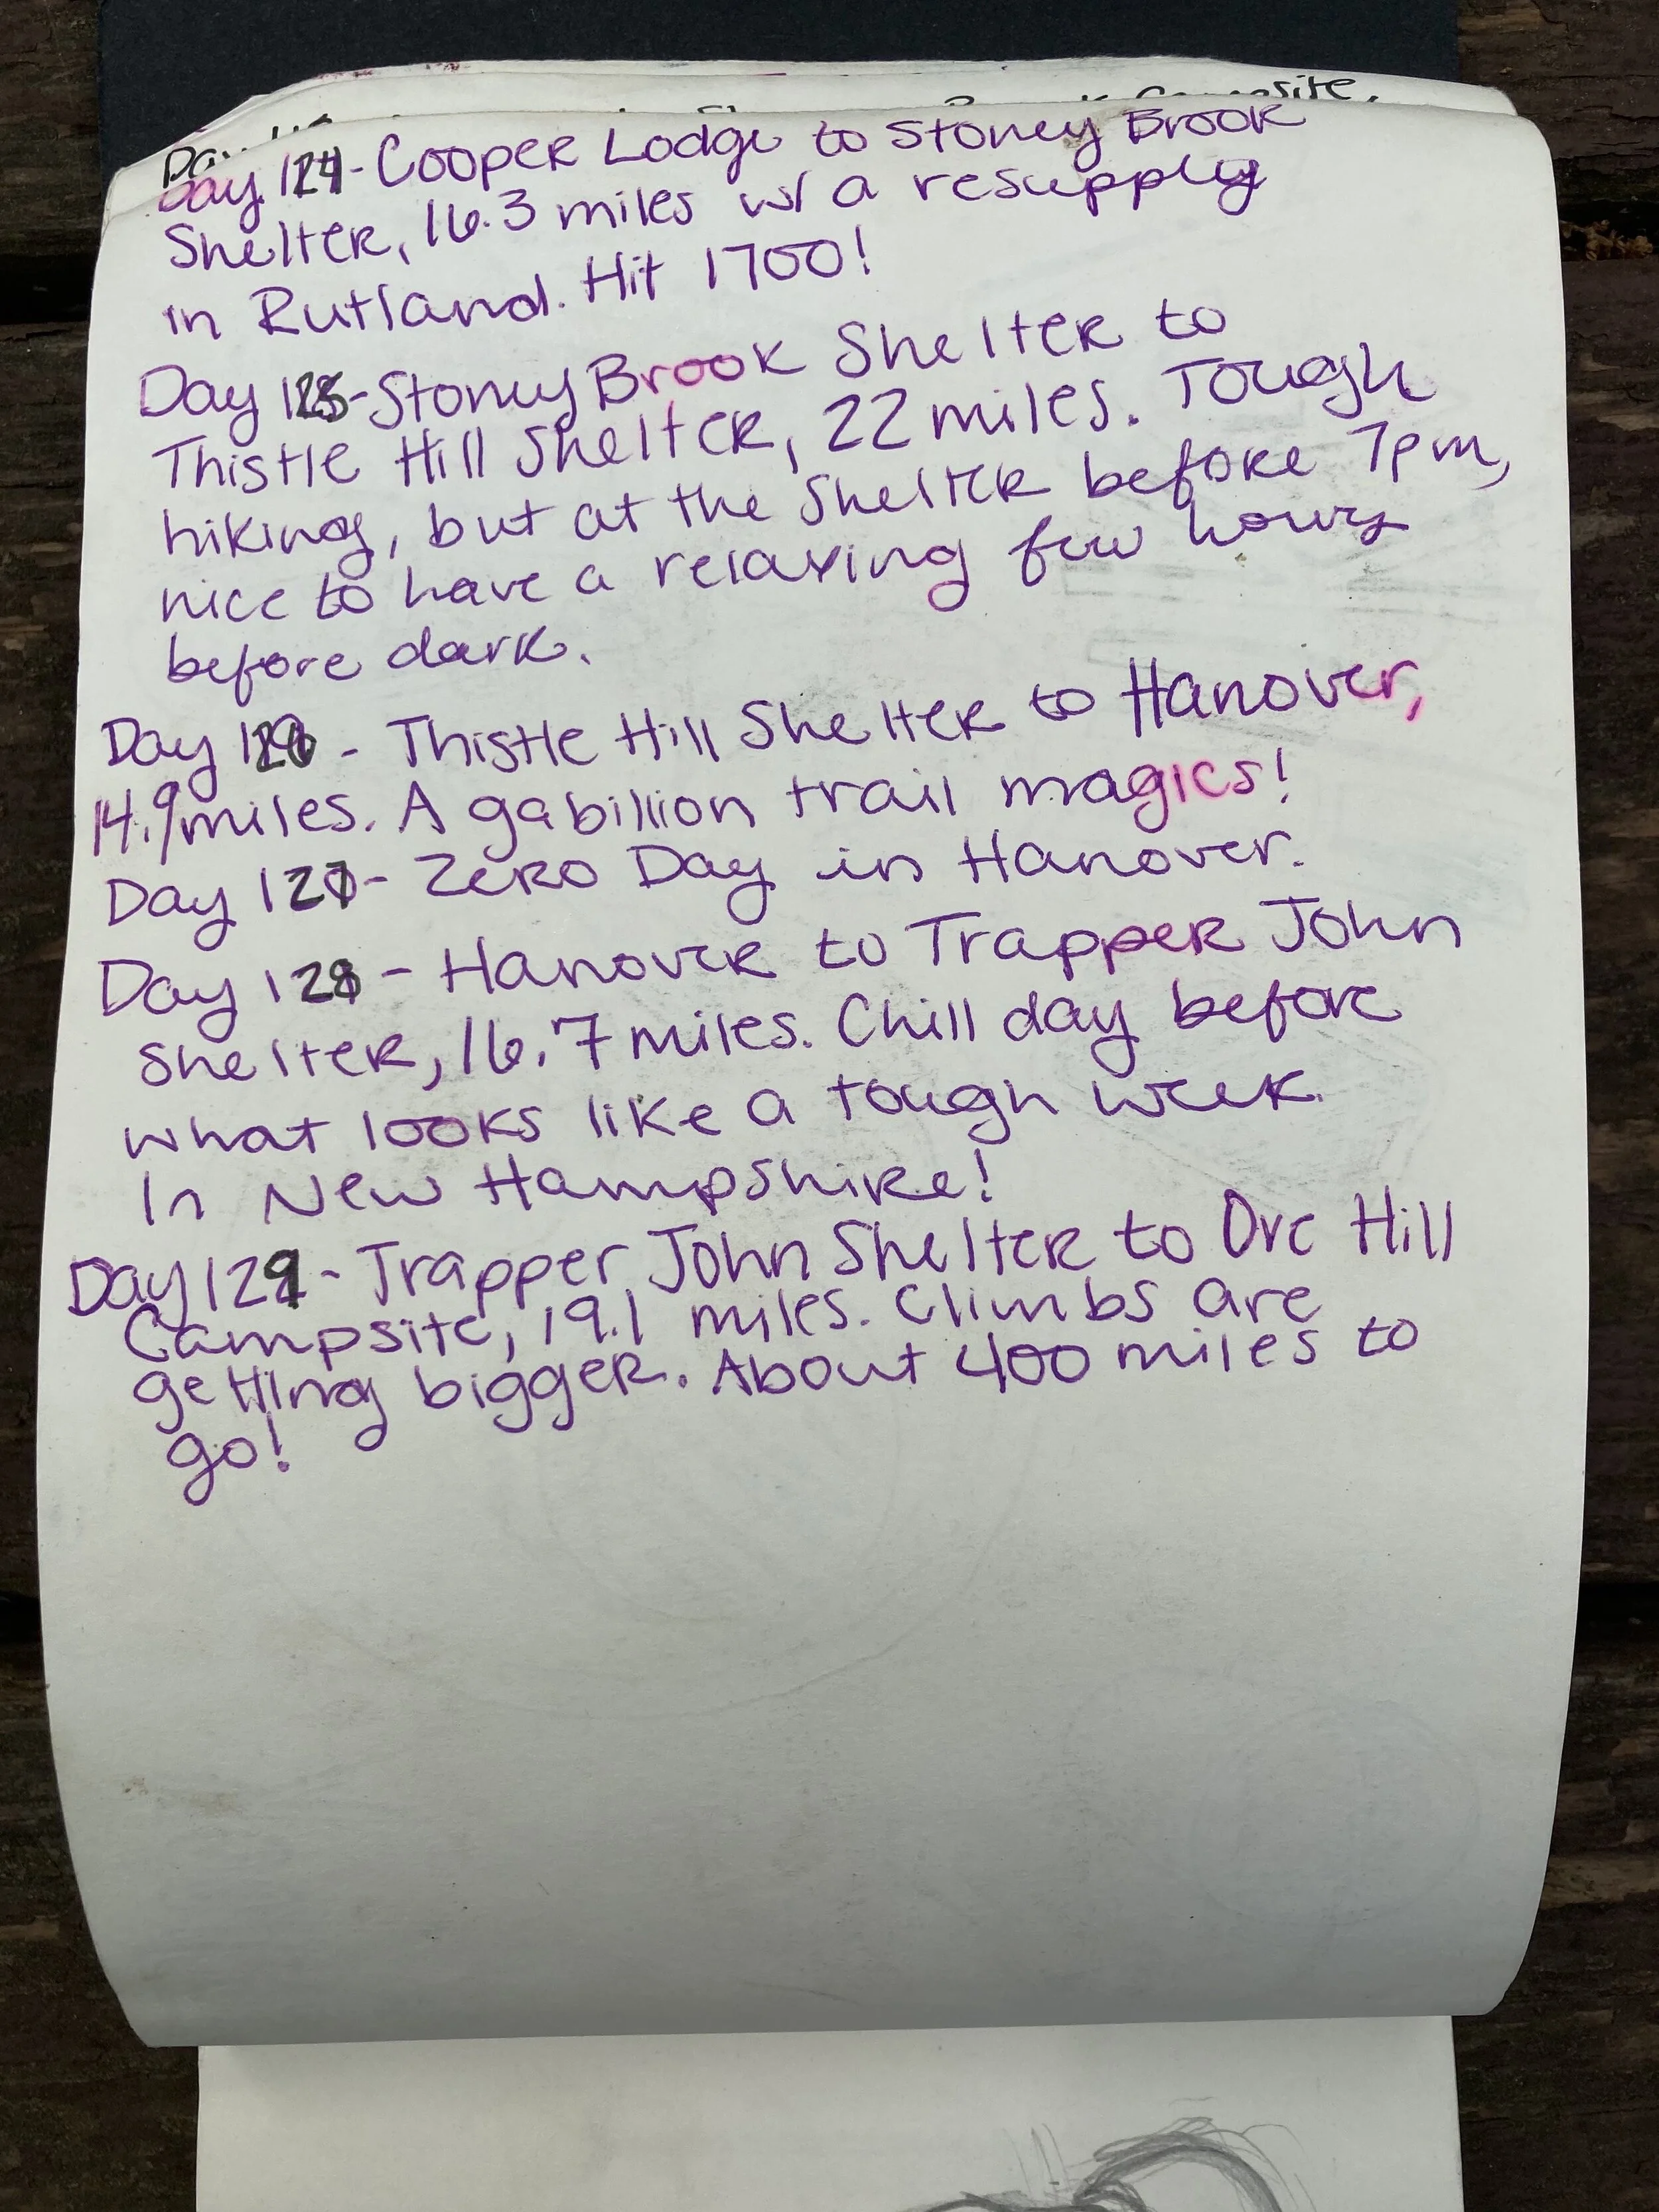 Day 124 - Cooper Lodge to Stoney Brook
Shelter, 16.3 miles w/ a resupply
in Rutland. Hit 1700!
Day 125 - Stoney Brook Shelter to
Thistle Hill Shelter, 22 miles. Tough
hiking, but at the shelter before 7pm,
nice to have a relaxing few hours
before dark.
Day 126 - Thistle Hill Shelter to Hanover,
14.9 miles. A gabillion trail magics!
Day 127 - Zero Day in Hanover.
Day 128 - Hanover to Trapper John
Shelter, 16.7 miles. Chill day before
what looks like a tough week
in New Hampshire!
Day 129 - Trapper John Shelter to Ore Hill
Campsite, 19.1 miles. Climbs are
getting bigger. About 400 miles to
go!